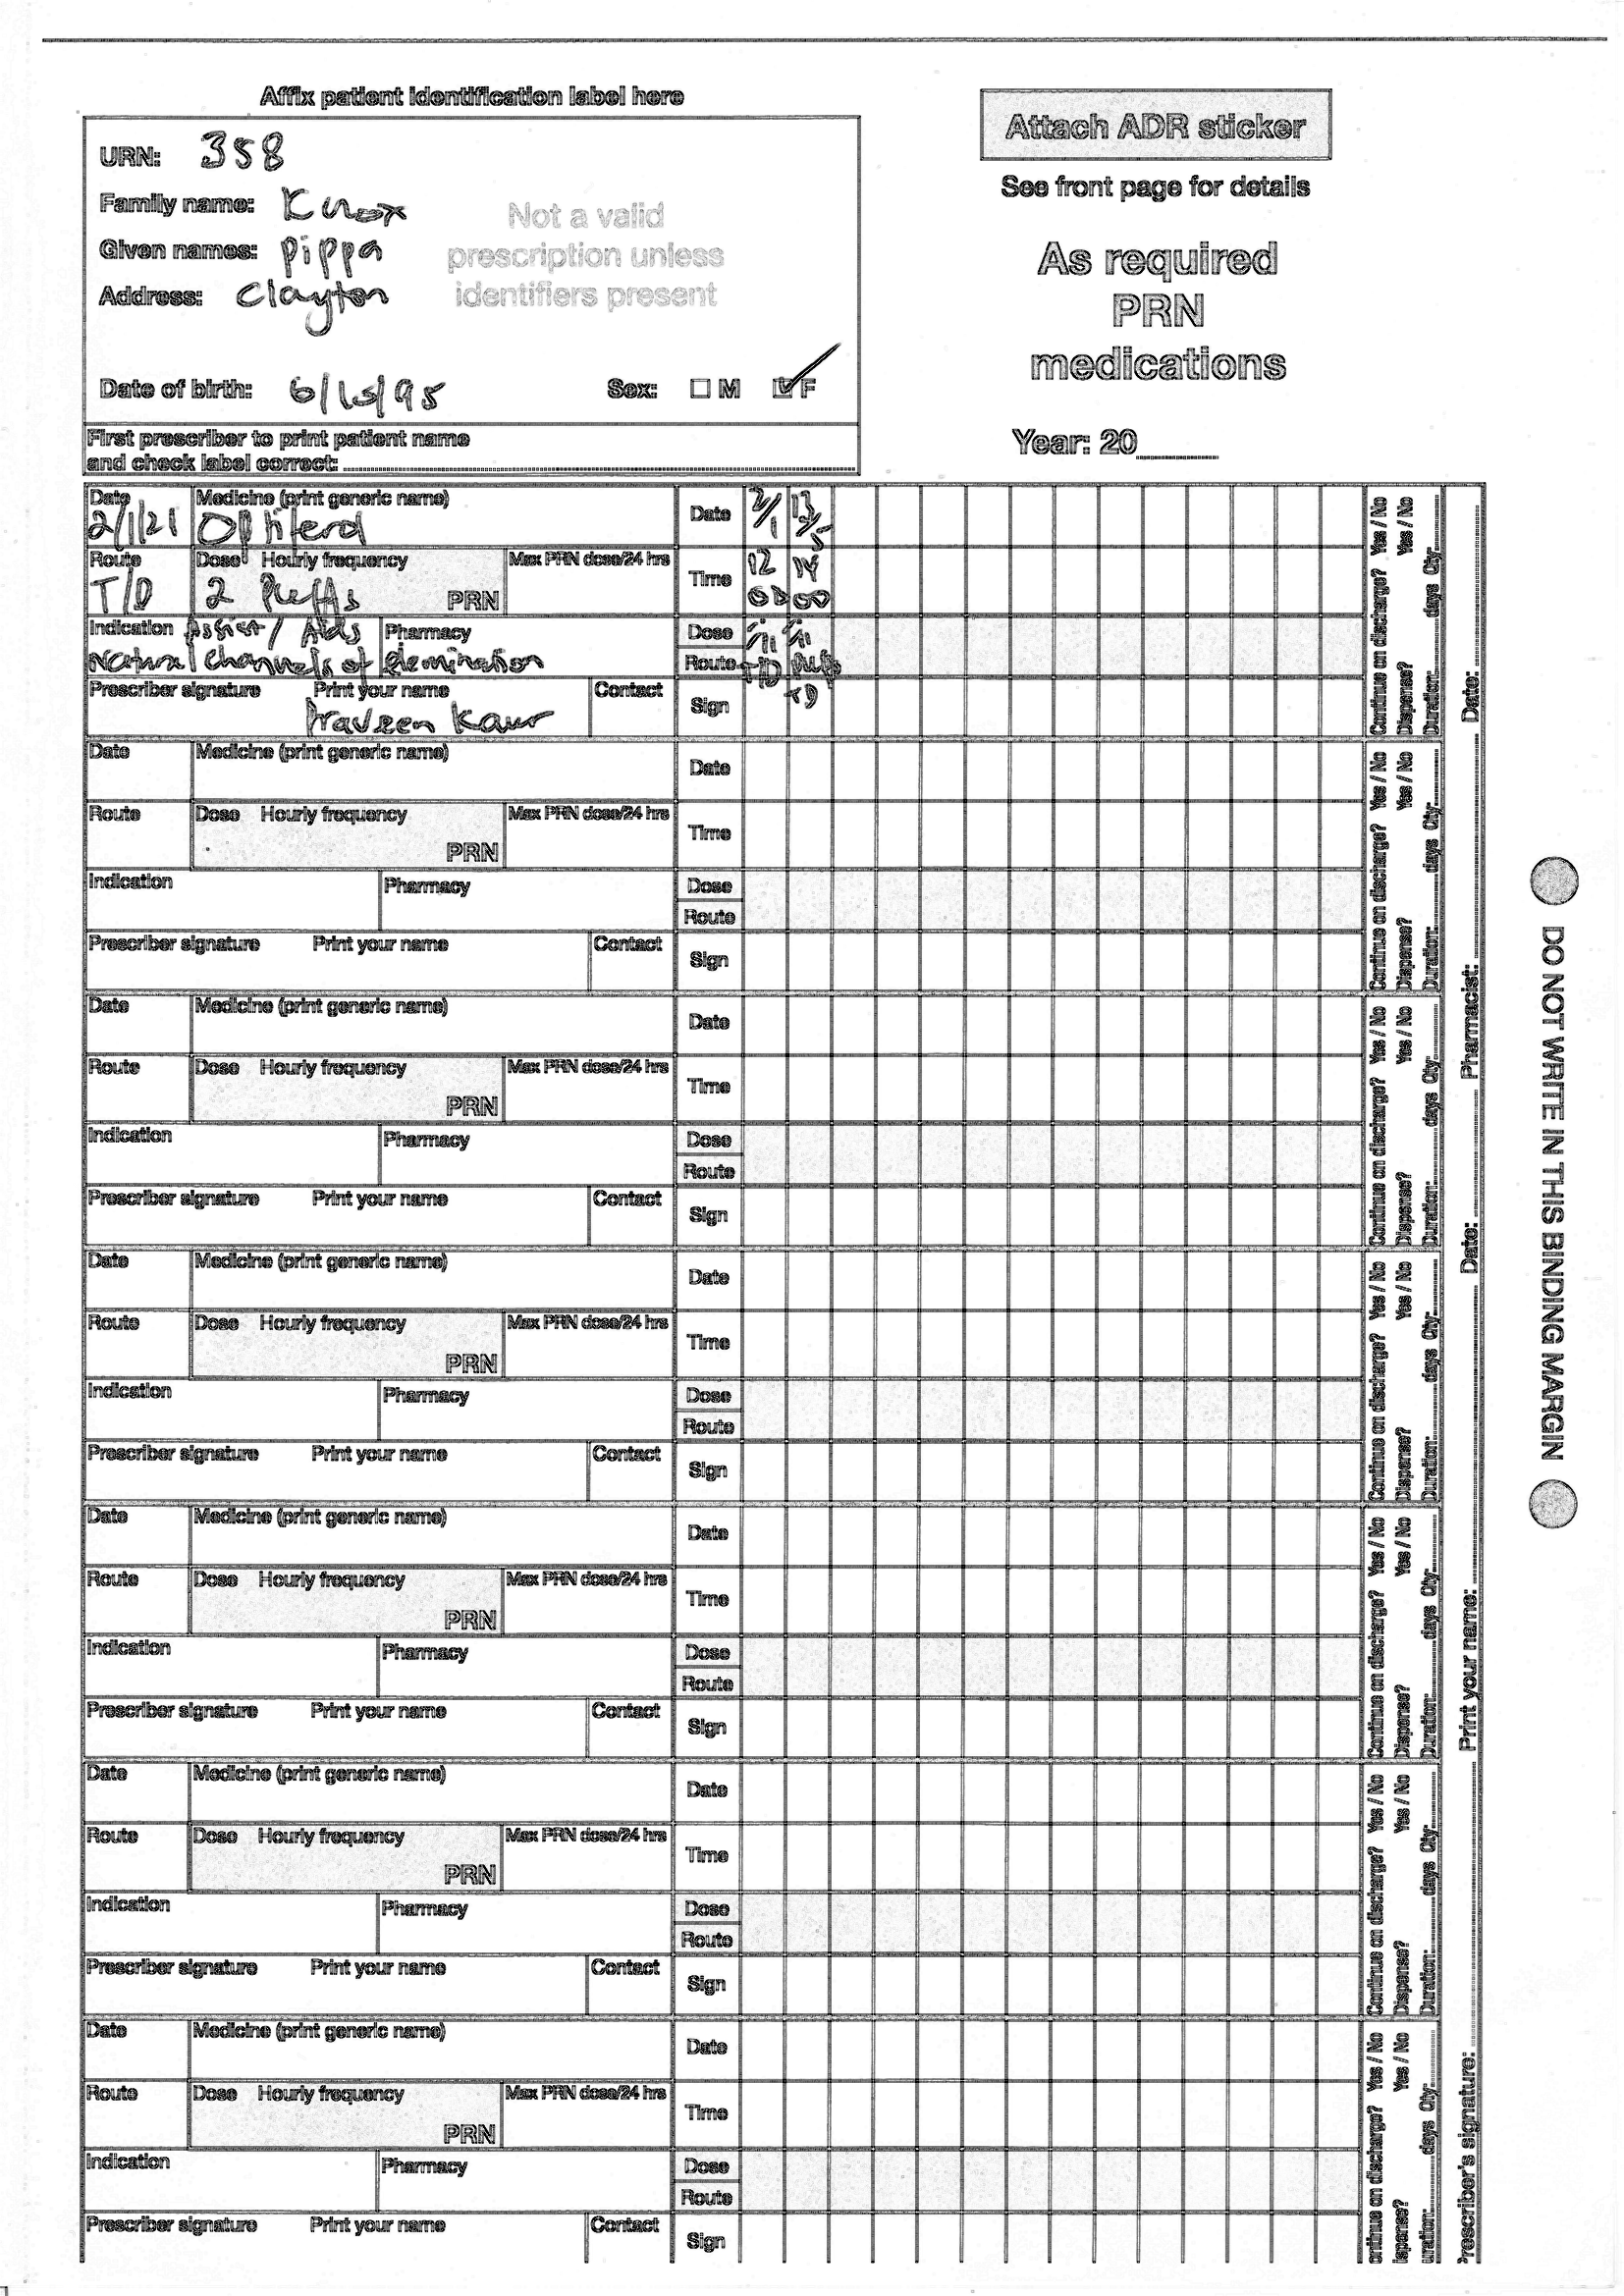 Affix patient identification label here
Attach ADR sticker
See front page for details
As required
PRN
medications
Year: 20
URN: 358
Family name: Knox
Given names: Pippa
Address: Clayton
Not a valid
prescription unless
identifiers present
Date of birth: 6/10/95 Sex: M F
First prescriber to print patient name
and check label correct:
Date Medicine (print generic name) Date
2/1/21 2/1
Route Dose Hourly frequency Max PRN dose/24 hrs Time 12 14
T/D 2 Puffs PRN 00 00
Indication Assist / Aids Pharmacy Dose
Natural channels of elemination Route T/D
Prescriber signature Print your name Contact Sign TD
Praveen Kaur
Continue on discharge? Yes / No
Dispense? Yes / No
Duration: days Qty:
Date Medicine (print generic name) Date
Route Dose Hourly frequency Max PRN dose/24 hrs Time
PRN
Indication Pharmacy Dose
Route
Prescriber signature Print your name Contact Sign
Continue on discharge? Yes / No
Dispense? Yes / No
Duration: days Qty:
Date Medicine (print generic name) Date
Route Dose Hourly frequency Max PRN dose/24 hrs Time
PRN
Indication Pharmacy Dose
Route
Prescriber signature Print your name Contact Sign
Continue on discharge? Yes / No
Dispense? Yes / No
Duration: days Qty:
Date Medicine (print generic name) Date
Route Dose Hourly frequency Max PRN dose/24 hrs Time
PRN
Indication Pharmacy Dose
Route
Prescriber signature Print your name Contact Sign
Continue on discharge? Yes / No
Dispense? Yes / No
Duration: days Qty:
Date Medicine (print generic name) Date
Route Dose Hourly frequency Max PRN dose/24 hrs Time
PRN
Indication Pharmacy Dose
Route
Prescriber signature Print your name Contact Sign
Continue on discharge? Yes / No
Dispense? Yes / No
Duration: days Qty:
Date Medicine (print generic name) Date
Route Dose Hourly frequency Max PRN dose/24 hrs Time
PRN
Indication Pharmacy Dose
Route
Prescriber signature Print your name Contact Sign
Continue on discharge? Yes / No
Dispense? Yes / No
Duration: days Qty:
Date Medicine (print generic name) Date
Route Dose Hourly frequency Max PRN dose/24 hrs Time
PRN
Indication Pharmacy Dose
Route
Prescriber signature Print your name Contact Sign
ontinue on discharge? Yes / No
ispense? Yes / No
uration: days Qty:
rescriber's signature: Print your name: Date: Pharmacist: Date:
DO NOT WRITE IN THIS BINDING MARGIN